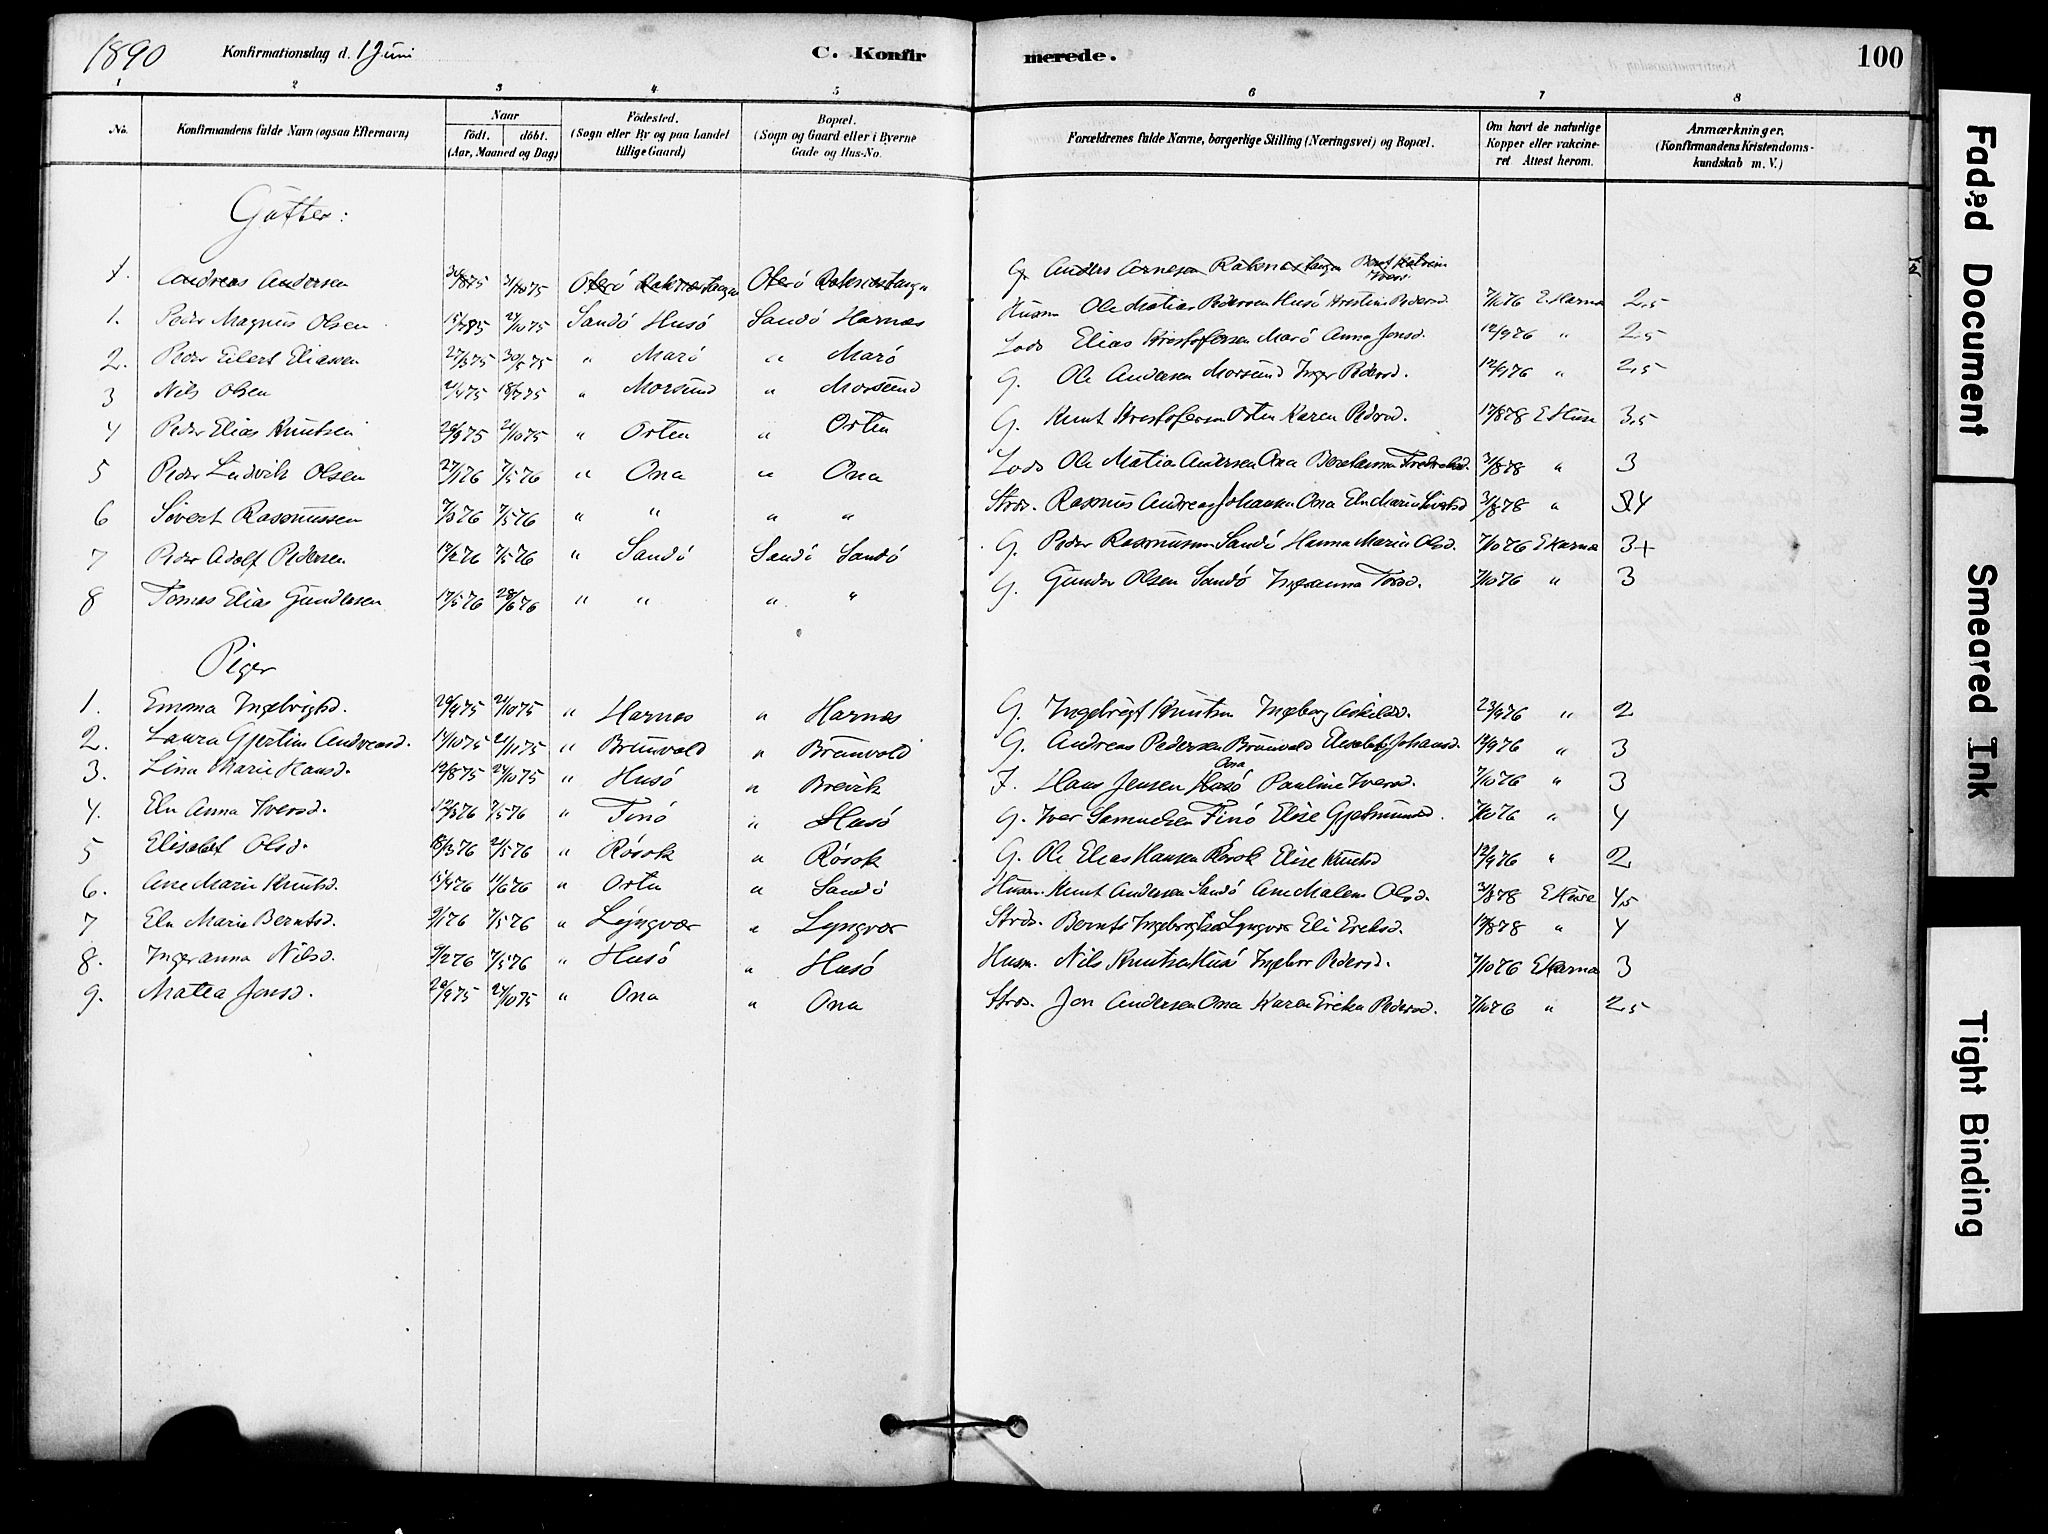 1890 Konfirmationsdag d. 1 Juni C. Konfirmerede. 100
1 2 3 4 5 6 7 8
No. Konfirmandens fulde Navn (ogsaa Efternavn) Naar födt. döbt. (Aar, Maaned og Dag) Födested. (Sogn eller By og paa Landet tillige Gaard) Bopæl. (Sogn og Gaard eller i Byerne Gade og Hus-No. Forældrenes fulde Navne, borgerlige Stilling (Næringsvei) og Bopæl. Om havt de naturlige Kopper eller vakcineret Attest herom. Anmærkninger. (Konfirmandens Kristendomskundskab m. V.)
Gutter:
1. Andreas Andersen Oterö Raknestangen Oterö Raknestangn G. Anders Arnesen Raknestangen
1. Peder Magnus Olsen 27/10 75 Sandö Husö Sandö Harnes Husm Ole Matias Pedersen Husö Pedersd. 7/10 76 E Harna 2,5
2. Peder Eilert Eliassen 27/3 75 30/5 75 " Marö " Marö Lods Elias Kristofersen Marö Anna Jonsd. 12/9 76 " 2,5
3 Nils Olsen 21/4 75 18/7 75 " Morsund " Morsund G. Ole Andersen Morsund Inger Pedersd. 12/9 76 " 2,5
4 Peder Elias Knutsen 24/10 75 " Orten " Orten G. Knut Kristofersen Orten Karen Pedersd. 17/8 78 E Huse 3,5
5 Peder Ludvik Olsen 27/1 76 7/5 76 " Ona " Ona Lods Ole Matias Andersen Ona 31/8 78 " 3
6 Sivert Rasmussen 7/3 76 7/5 76 " " " " Strds. Rasmus Andreas Johansen Ona Eln Marie Sivertsd 31/8 78 " 4
7 Peder Adolf Pedersen 17/2 76 7/5 76 " Sandö Sandö Sandö G. Peder Rasmussen Sandö Hanna Marie Olsd. 7/10 76 E Harna 3+
8 Tomas Elias Gundersen 17/5 76 28/6 76 " " " " G. Gunder Olsen Sandö Ingeranna Torsd. 7/10 76 " 3
Piger
1. Emma Ingebrigtsd. 24/10 75 " Harnes " Harnes G. Ingebrigt Knutsen Ingeborg Askilds. 23/9 76 " 2
2. Laura Gjertine Andreasd. 14/10 75 21/11 75 " Brunvold " Brunvold G. Andreas Pedersen Brunvold Elisabet Johansd. 12/9 76 " 3
3. Lina Marie Hansd. 19/8 75 24/10 75 " Husö " Brevik F. Hans Jensen Husö Ona Pauline Iversd. 7/10 76 " 3
4. Eln Anna Iversd. 12/3 76 7/5 76 " Finö " Husö G. Iver Samuelsen Finö Elise Gjetmundsd. 7/10 76 " 4
5 Elisabet Olsd. 18/3 76 21/5 76 " Rösok " Rösok G. Ole Elias Hansen Rösok Elise Knutsd 12/9 76 " 2
6. Ane Marie Knutsd. 15/4 76 11/6 76 " Orten " Sandö Husm. Knut Andersen Sandö Ane Malene Olsd. 31/8 78 E Huse 4,5
7 Eln Marie Berntsd. 9/1 76 7/5 76 " Lyngvær " Lyngvær Strds. Bernt Ingebrigtsen Lyngvær Eli Eriksd. 17/8 78 " 4
8. Ingeranna Nilsd. 9/2 76 7/5 76 " Husö " Husö Husm. Nils Knutsen Husö Ingeborg Pedersd. 7/10 76 E Harna 3
9. Matea Jonsd. 20/9 75 24/10 75 " Ona " Ona Strds. Jon Andersen Ona Karen Erika Pedersd. 7/10 76 " 2,5
Faded Document
Smeared Ink
Tight Binding